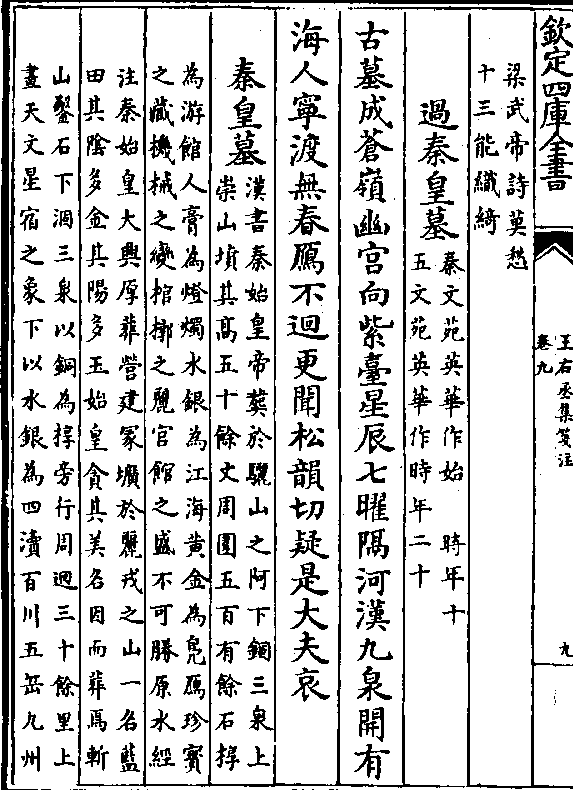 欽定四庫全書
王右丞集箋注
卷九
九
梁武帝詩莫愁
十三能織綺
過秦皇墓
秦文苑英華作始 時年十
五文苑英華作時年二十
古墓成蒼嶺幽宮向紫臺星辰七曜隔河漢九泉開有
海人寧渡無春鴈不迴更聞松韻切疑是大夫哀
秦皇墓
漢書秦始皇帝葬於驪山之阿下錮三泉上
崇山墳其髙五十餘丈周圍五百有餘石椁
為游館人膏為燈燭水銀為江海黄金為鳬鴈珍寳
之藏機械之變棺槨之麗宫館之盛不可勝原水經
注秦始皇大興厚葬營建冢壙於麗戎之山一名藍
田其隂多金其陽多玉始皇貪其美名因而葬焉斬
山鑿石下涸三泉以銅為椁旁行周迴三十餘里上
畫天文星宿之象下以水銀為四瀆百川五岳九州